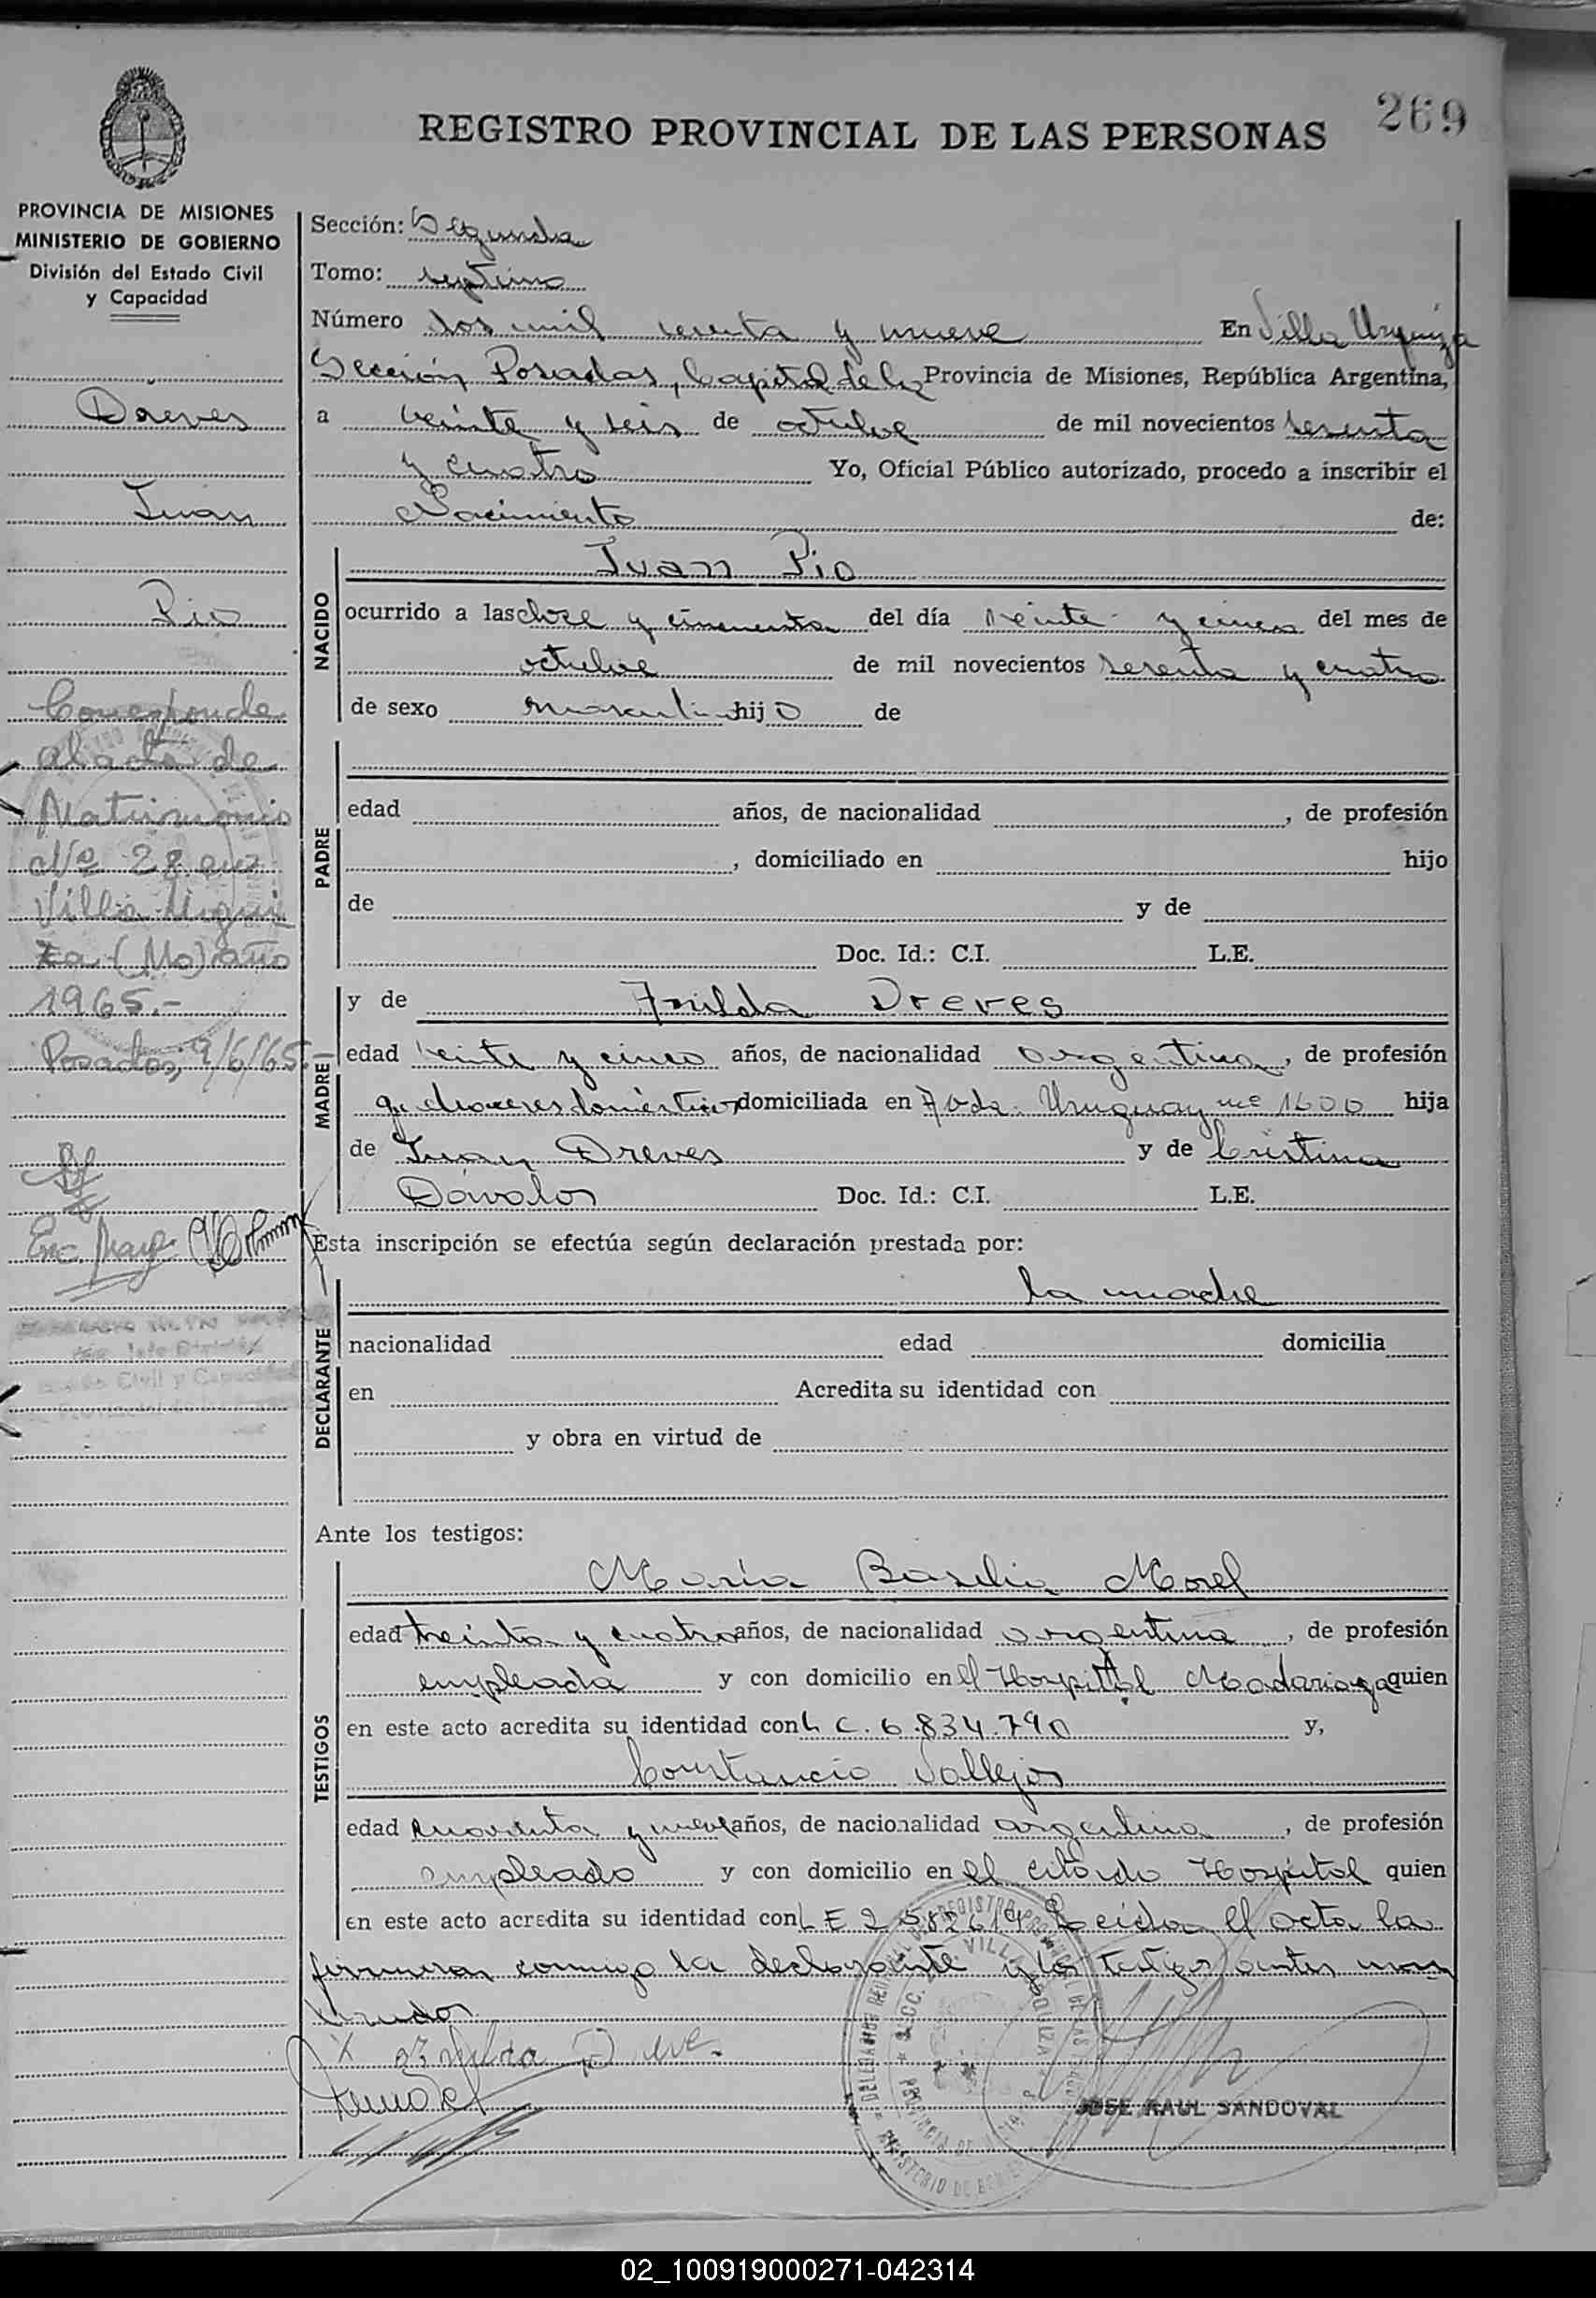 269
REGISTRO PROVINCIAL DE LAS PERSONAS
PROVINCIA DE MISIONES
MINISTERIO DE GOBIERNO
División del Estado Civil
y Capacidad
Dreves
Juan
Pio
Corresponde
al acta de
Matrimonio
Nº 28 en
Villa Urqui
za (Mo) año
1965.-
Posadas, 9/6/65.-
Sección: Segunda
Tomo: septimo
Número dos mil sesenta y nueve En Villa Urquiza
Sección Posadas, Capital de la Provincia de Misiones, República Argentina,
a veinte y seis de octubre de mil novecientos sesenta
y cuatro Yo, Oficial Público autorizado, procedo a inscribir el
Nacimiento de:
NACIDO
Juan Pio
ocurrido a las doce y cincuenta del día veinte y cinco del mes de
octubre de mil novecientos sesenta y cuatro
de sexo masculino hijo de
PADRE
edad años, de nacionalidad , de profesión
, domiciliado en hijo
de y de
Doc. Id.: C.I. L.E.
MADRE
y de Dreves
edad veinte y cinco años, de nacionalidad argentina, de profesión
quehaceres domésticos domiciliada en Avda. Uruguay 1600 hija
de Juan Dreves y de Cristina
Dávalos Doc. Id.: C.I. L.E.
Esta inscripción se efectúa según declaración prestada por:
DECLARANTE
la madre
nacionalidad edad domicilia
en Acredita su identidad con
y obra en virtud de
Ante los testigos:
TESTIGOS
María Basilia Morel
edad treinta y cuatro años, de nacionalidad argentina, de profesión
empleada y con domicilio en el Hospital Madariaga quien
en este acto acredita su identidad con L C. 6.834.790 y,
Constancio Vallejos
edad cuarenta y nueve años, de nacionalidad argentina, de profesión
empleado y con domicilio en el citado Hospital quien
en este acto acredita su identidad con L E 2 582619 Leida el acta la
firman conmigo la declarante y los testigos antes nom
brados.
JOSE RAUL SANDOVAL
02_100919000271-042314